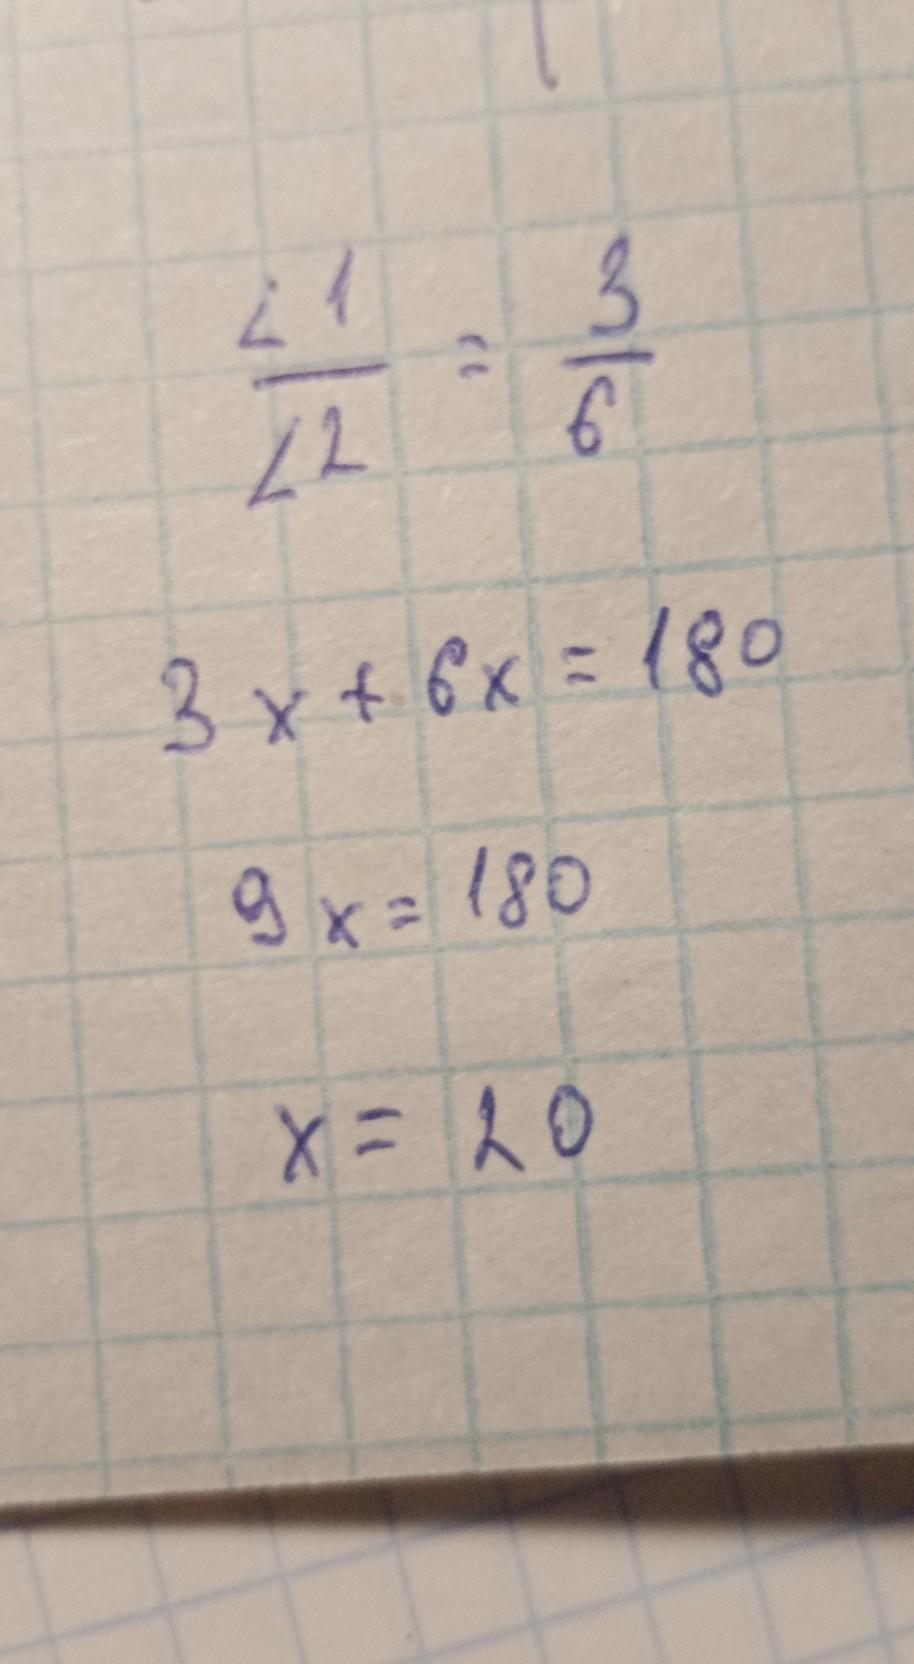 ∠1/∠2 = 3/6
3x + 6x = 180
9x = 180
x = 20